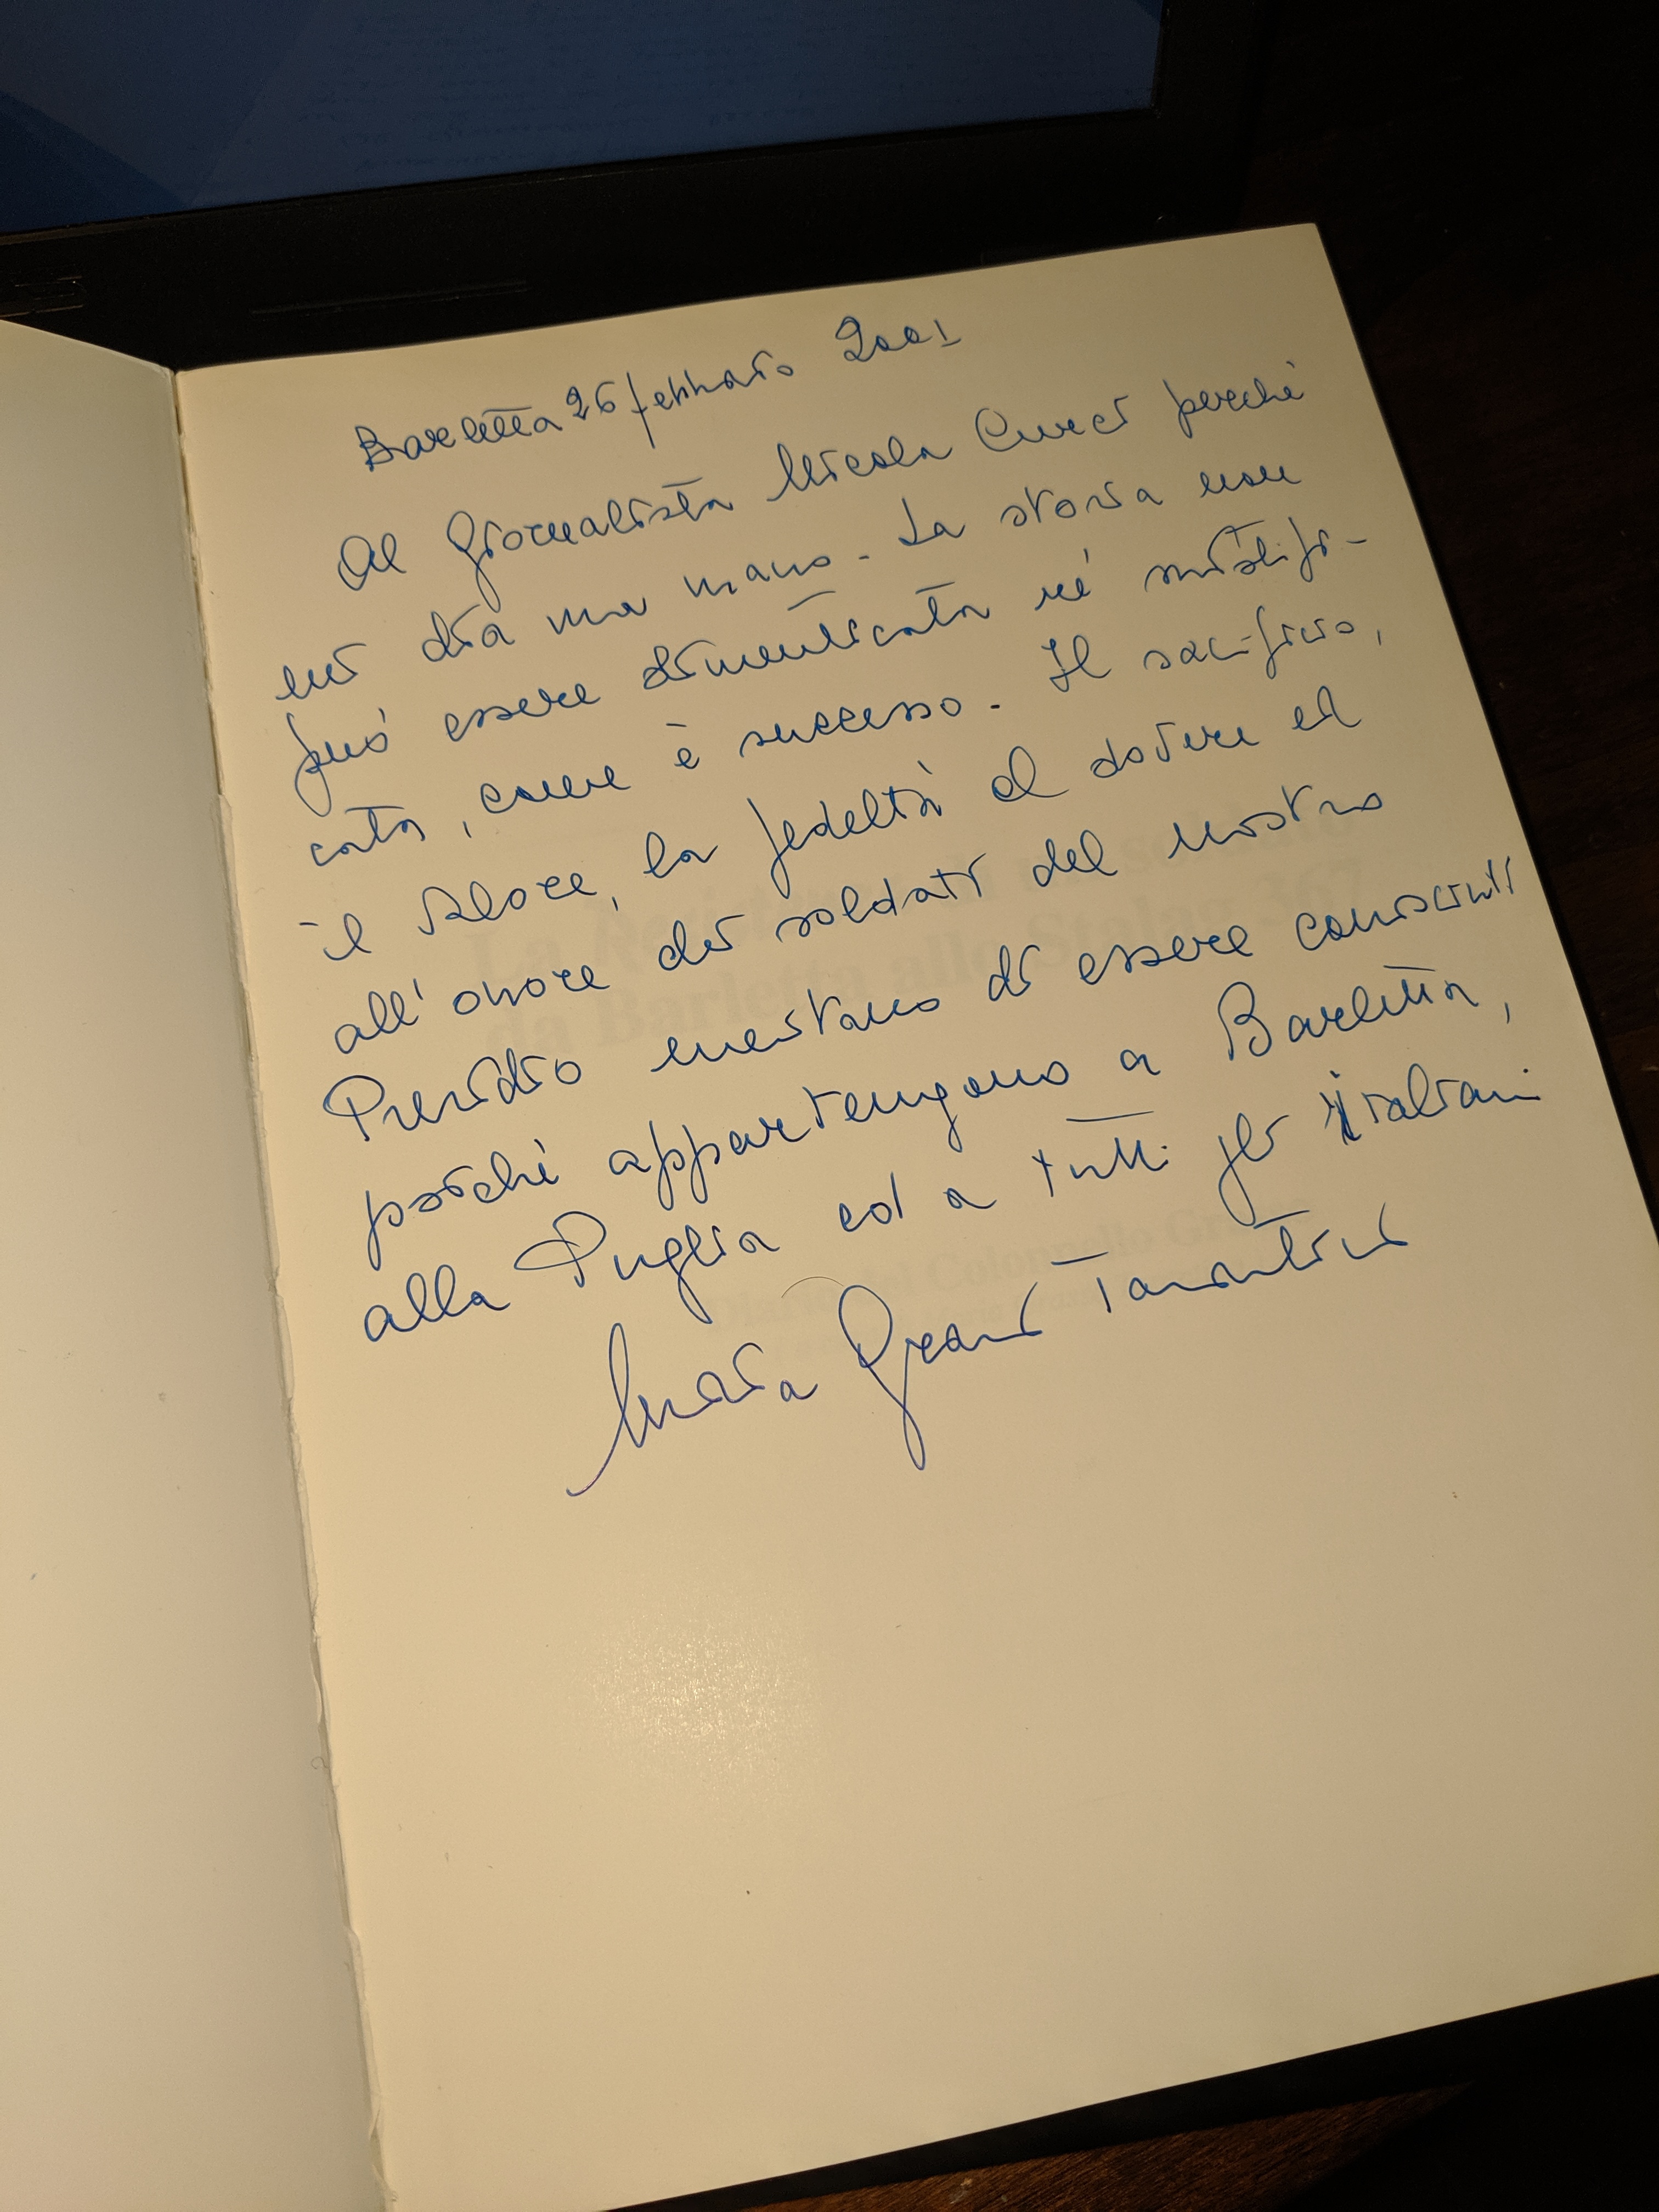 Barletta 26 febbraio 2001
Al Giornalista Nicola Curci perché
mi dia una mano. La storia non
può essere dimenticata né mistifi-
cata, come è successo. Il sacrificio,
il valore, la fedeltà al dovere ed
all'onore dei soldati del nostro
Presidio meritano di essere conosciuti
poiché appartengono a Barletta,
alla Puglia ed a tutti gli italiani
Maria Grasso Tarantino
La Resistenza
da Barletta allo Stalag
Diario del Colonnello Grasso